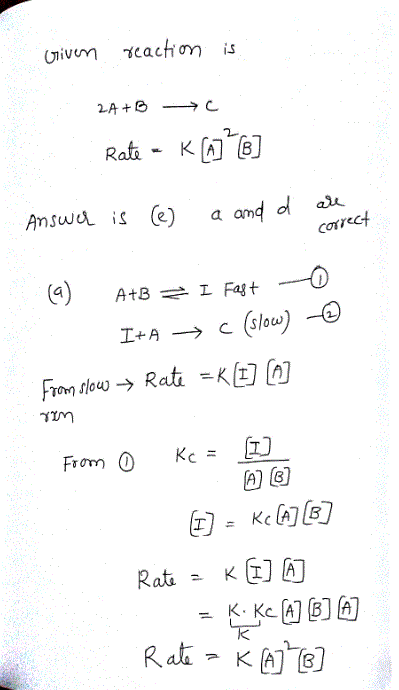 Given reaction is
2A + B ⟶ C
Rate = K [A]²[B]
Answer is (e) a and d are correct
(a) A+B ⇌ I Fast —①
I+A ⟶ C (slow) —②
From slow rxn → Rate = K[I] [A]
From ① Kc = [I] / [A] [B]
[I] = Kc [A] [B]
Rate = K [I] [A]
= K. Kc [A] [B] [A]
K
Rate = K [A]² [B]